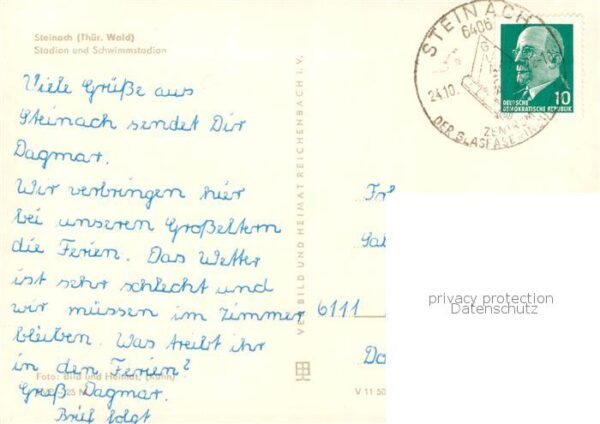 Steinach (Thür. Wald)
Stadion und Schwimmstadion
Viele Grüße aus
Steinach sendet Dir
Dagmar.
Wir verbringen hier
bei unseren Großeltern
die Ferien. Das Wetter
ist sehr schlecht und
wir müssen im Zimmer
bleiben. Was treibt ihr
in den Ferien?
Gruß Dagmar.
Brief folgt
Foto: Bild und Heimat, (Kühn)
VEB BILD UND HEIMAT REICHENBACH I. V.
V 11 50
STEINACH
6406
24.10.
DER GLASFASER
DEUTSCHE
DEMOKRATISCHE REPUBLIK
10
6111
privacy protection
Datenschutz